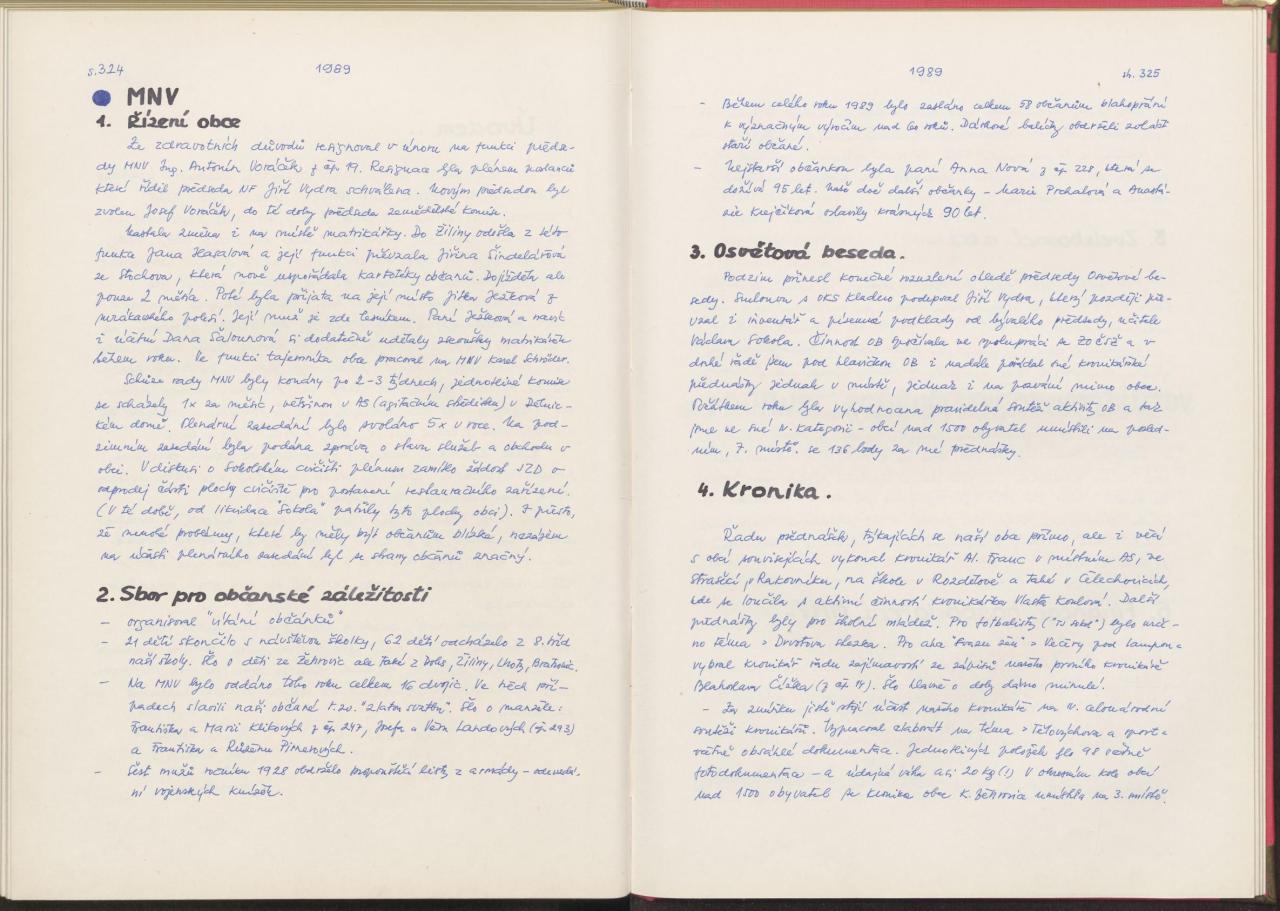 s. 324
1989
MNV
1. Řízení obce
Ze zdravotních důvodů resignoval v únoru na funkci předse-
dy MNV Ing. Antonín Voráček z čp. 19. Resignace byla plénem poslanců
které řídil předseda NF Jiří Vydra schválena. Novým předsedou byl
zvolen Josef Voráček, do té doby předseda zemědělské komise.
Nastala změna i na místě matrikářky. Do Žiliny odešla z této
funkce Jana Hasalová a její funkci převzala Jiřina Šindelářová
ze Stochova, která nově uspořádala kartotéky občanů. Dojížděla ale
pouze 2 měsíce. Poté byla přijata na její místo Jitka Ježková z
mrákavského polesí. Její muž je zde lesníkem. Paní Ježková a navíc
i účetní Dana Šalounová si dodatečně udělaly zkoušky matrikářek
během roku. Ve funkci tajemníka obce pracoval na MNV Karel Schröder.
Schůze rady MNV byly konány po 2-3 týdnech, jednotlivé komise
se scházely 1x za měsíc, většinou v AS (agitačním středisku) v Dělnic-
kém domě. Plenární zasedání bylo svoláno 5x v roce. Na pod-
zimním zasedání byla podána zpráva o stavu služeb a obchodu v
obci. V diskusi o Sokolském cvičišti plénum zamítlo žádost JZD o
odprodej části plochy cvičiště pro postavení restauračního zařízení.
(V té době, od likvidace "Sokola" patřily tyto plochy obci). I přesto,
že mnohé problémy, které by měly být občanům blízké, nezájem
na účasti plenárního zasedání byl ze strany občanů značný.
2. Sbor pro občanské záležitosti
- organisoval "vítání občánků"
- 21 dětí skončilo s návštěvou školky, 62 dětí odcházelo z 8. tříd
naší školy. Šlo o děti ze Žehrovic ale také z Dols, Žiliny, Lhoty, Bratronic.
- Na MNV bylo oddáno toho roku celkem 16 dvojic. Ve třech pří-
padech slavili naši občané t.zv. "zlatou svatbu". Šlo o manžele:
Františka a Marii Klikových z čp. 247, Josefa a Věru Landových (čp. 293)
a Františka a Růženu Pimerových.
- Šest mužů ročníku 1928 obdrželo propouštěcí listy z armády - odevzdá-
ní vojenských knížek.
1989
str. 325
- Během celého roku 1989 bylo zasláno celkem 58 občanům blahopřání
k význačným výročím nad 60 roků. Dárkové balíčky obdrželi zvlášť
staří občané.
- Nejstarší občankou byla paní Anna Nová z čp. 228, která se
dožívá 95 let. Naše dvě další občanky - Marie Prchalová a Anastá-
zie Krejčíková oslavily krásných 90 let.
3. Osvětová beseda.
Podzim přinesl konečné rozuzlení ohledně předsedy Osvětové be-
sedy. Smlouvu s OKS Kladno podepsal Jiří Vydra, který později pře-
vzal i inventář a písemné podklady od bývalého předsedy, učitele
Václava Sokola. Činnost OB spočívala ve spolupráci se ZO ČSŽ a v
druhé řadě jsem pod hlavičkou OB i nadále pořádal své kronikářské
přednášky jednak v místě, jednak i na pozvání mimo obec.
Začátkem roku byla vyhodnocena pravidelná soutěž aktivity OB a tak
jsme ve své IV. kategorii - obcí nad 1500 obyvatel umístili na posled-
ním, 7. místě se 136 body za mé přednášky.
4. Kronika.
Řadu přednášek, týkajících se naší obce přímo, ale i věcí
s obcí souvisejících vykonal kronikář Al. Franc v místním AS, ve
Strašecí, v Rakovníku, na škole v Rozdělově a také v Čelechovicích,
kde se loučila s aktivní činností kronikářka Vlasta Koulová. Další
přednášky byly pro školní mládež. Pro fotbalisty ("TJ Sokol") bylo urče-
no téma > Drvotova stezka. Pro oba "Svazu žen" > Večery pod lampou <
vybral kronikář řadu zajímavostí ze zápisů našeho prvního kronikáře
Blahoslava Čížka (z čp. 14). Šlo hlavně o doby dávno minulé.
- Za zmínku jistě stojí účast našeho kronikáře na IV. celonárodní
soutěži kronikářů. Vypracoval elaborát na téma > Tělovýchova a sport <
včetně obsáhlé dokumentace. Jednotlivých položek šlo 98 včetně
fotodokumentace - a údajná váha asi 20 kg (!) V okresním kole obcí
nad 1500 obyvatel se kronika obce K. Žehrovice umístila na 3. místě.